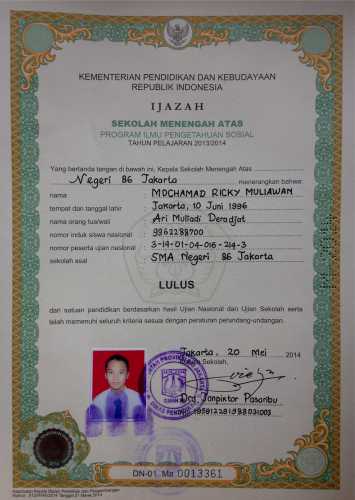 KEMENTERIAN PENDIDIKAN DAN KEBUDAYAAN
REPUBLIK INDONESIA
IJAZAH
SEKOLAH MENENGAH ATAS
PROGRAM ILMU PENGETAHUAN SOSIAL
TAHUN PELAJARAN 2013/2014
Yang bertanda tangan di bawah ini, Kepala Sekolah Menengah Atas
Negeri 86 Jakarta menerangkan bahwa:
nama MOCHAMAD RICKY MULIAWAN
tempat dan tanggal lahir Jakarta, 10 Juni 1996
nama orang tua/wali Ari Muliadi Deradjat
nomor induk siswa nasional 9962288700
nomor peserta ujian nasional 3-14-01-04-016-214-3
sekolah asal SMA Negeri 86 Jakarta
LULUS
dari satuan pendidikan berdasarkan hasil Ujian Nasional dan Ujian Sekolah serta
telah memenuhi seluruh kriteria sesuai dengan peraturan perundang-undangan.
Jakarta, 20 Mei 2014
Kepala Sekolah,
Drs Jonpiktor Pasaribu
DN-01 Ma 0013361